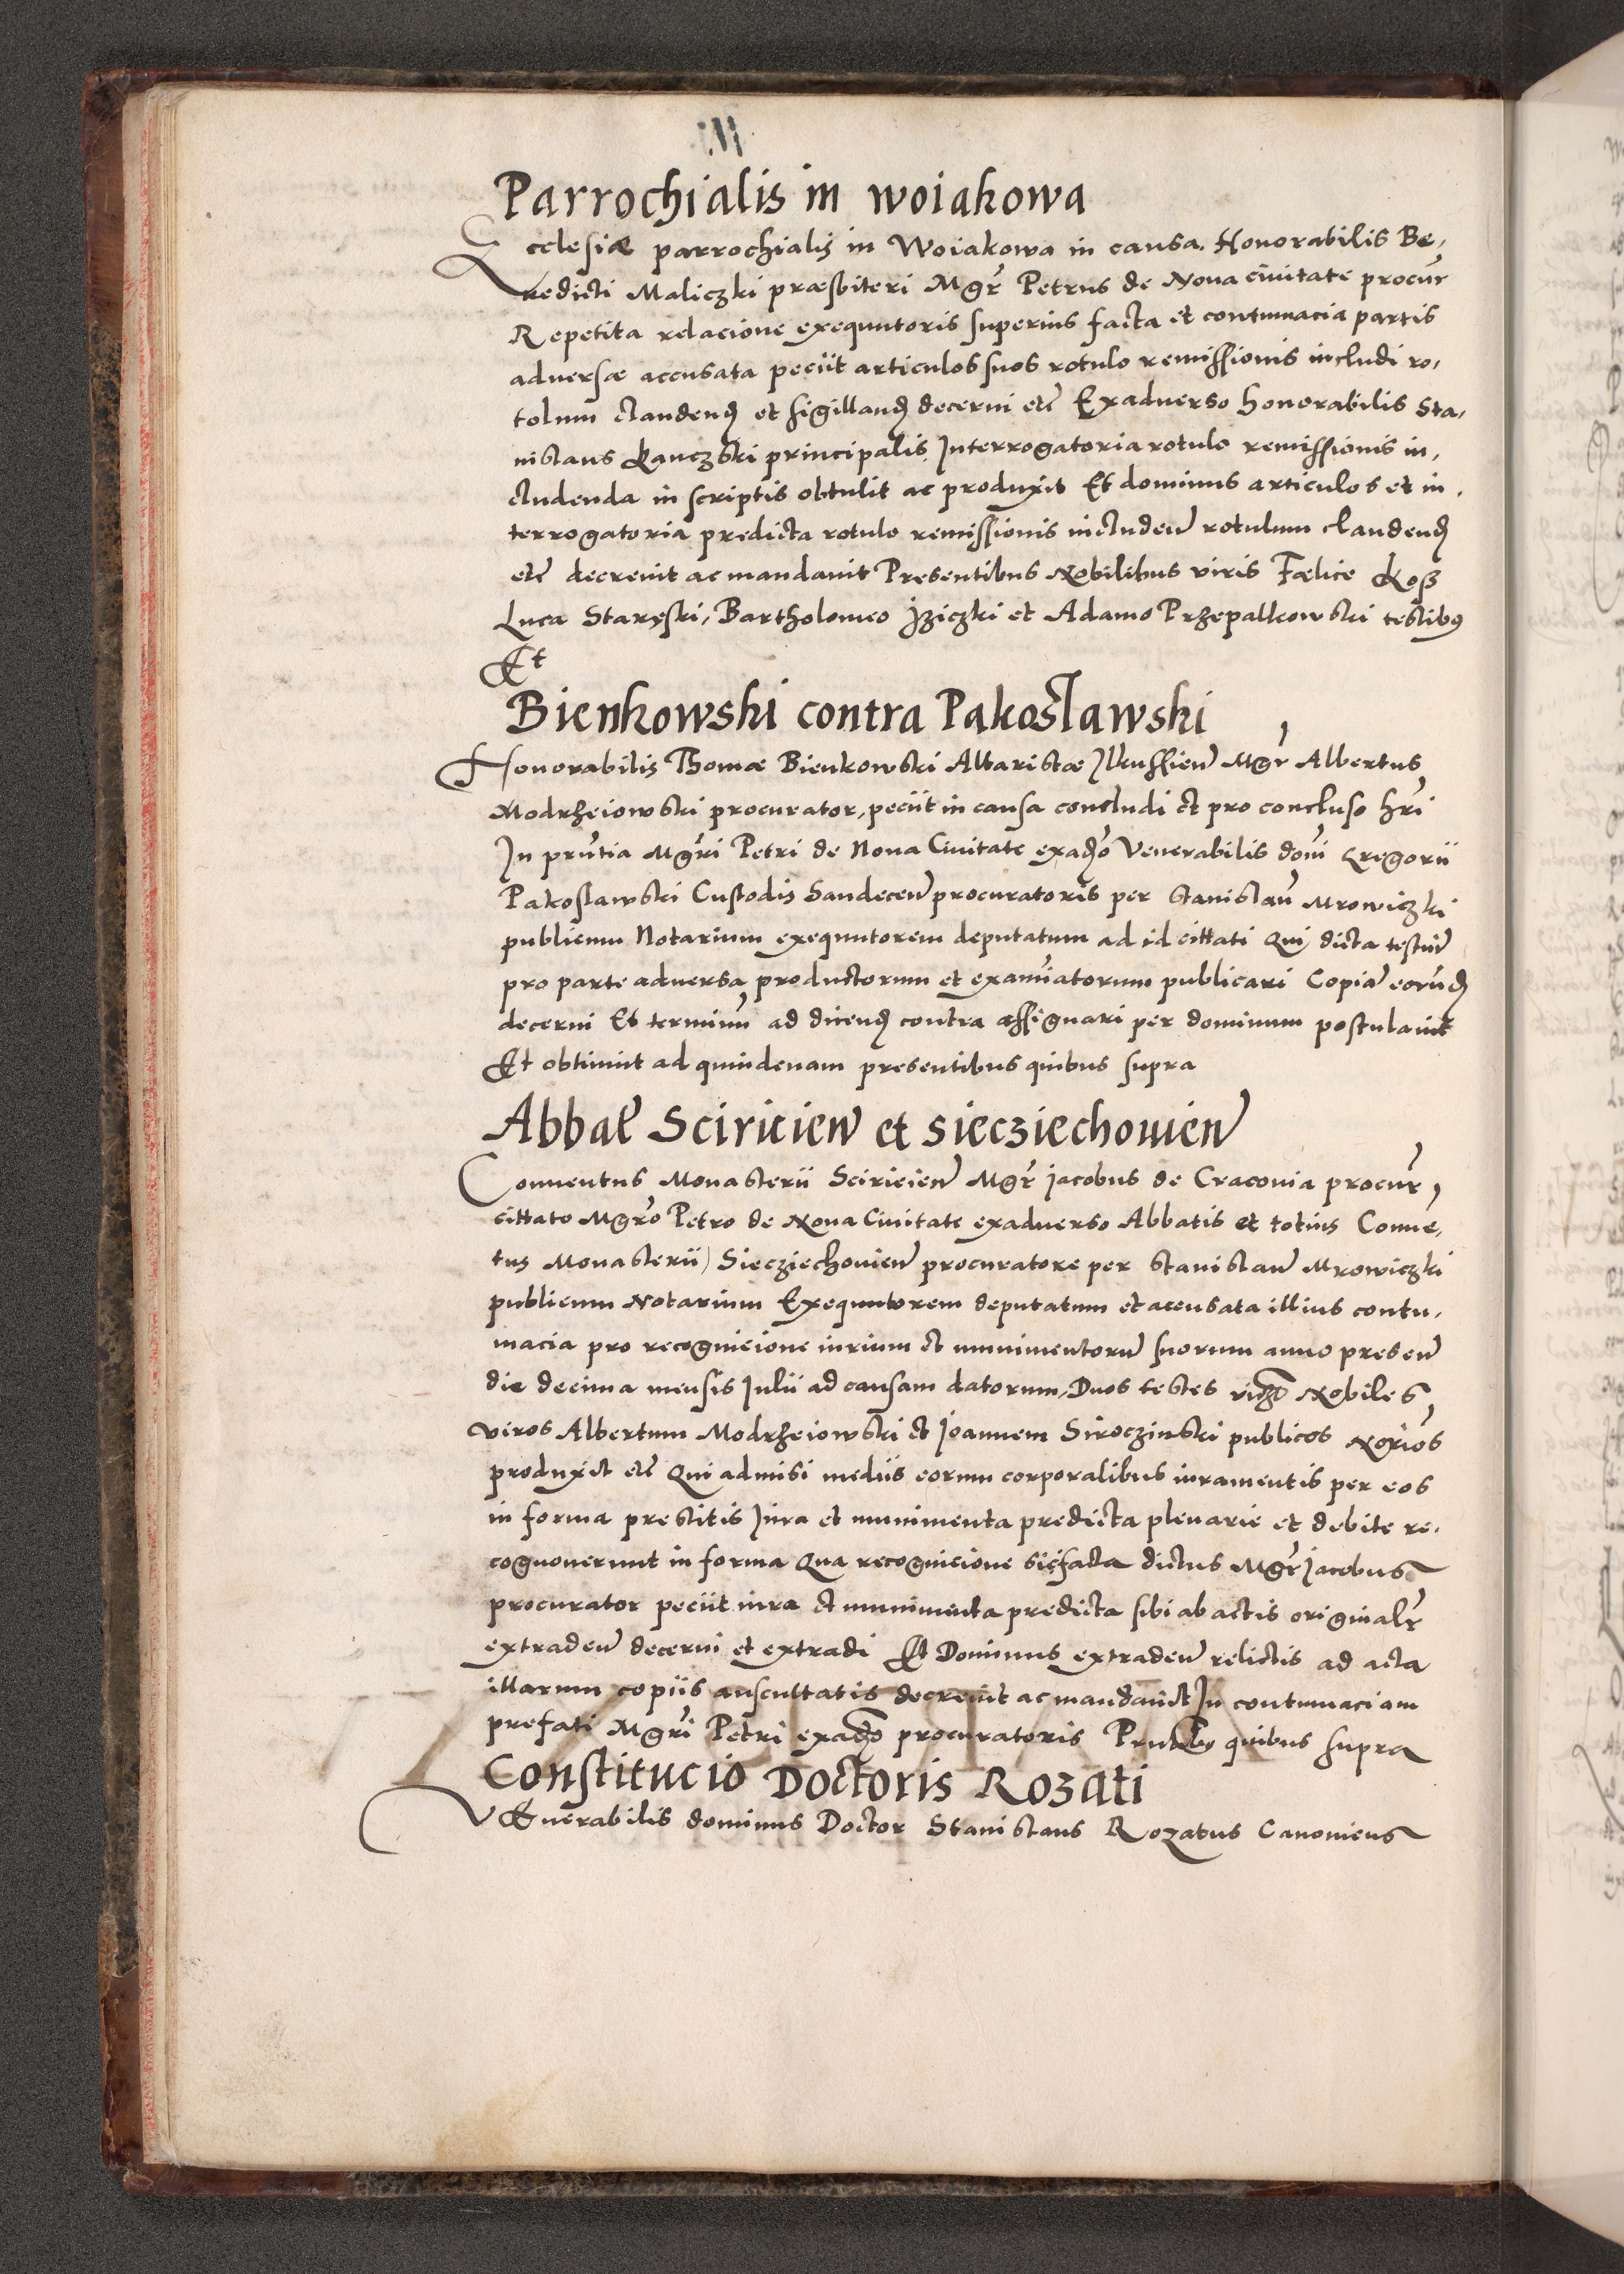 Parrochialis in woiakowa
Ecclesiæ parrochialis in Woiakowa in causa. Honorabilis Be,
nedicti Maliczki præsbiteri Mgr̃ Petrus de Noua ciuitate procur̃
Repetita relacione exequutoris superius facta et contumacia partis
aduersæ accusata peciit articulos suos rotulo remissionis includi ro,
tolum claudenđ et sigillanđ decerni etc̃ Exaduerso honorabilis Sta,
nislaus Lanczski principalis Interrogatoria rotulo remissionis in,
cludenda in scriptis obtulit ac produxit Et dominus articulos et in,
terrogatoria predicta rotulo remissionis includeñ rotulum claudenđ
etc̃ decreuit ac mandauit Presentibus Nobilibus viris Fælice Kosz
Luca Staręski, Bartholomeo Iziczki et Adamo Przepalkowski testibus
Et
Bienkowski contra Pakoslawski
Honorabilis Thomæ Bienkowski Altaristæ Ilkussieñ Mgr̃ Albertus
Modrzeiowski procurator, peciit in causa concludi et pro concluso hr̃i
In pñtia Mgr̃i Petri de Noua Ciuitate exađo Venerabilis dom̃i Gregorii
Pakoslawski Custodis Sandeceñ procuratoris per Stanislaũ Mrowiczki
publicum Notarium exequutorem deputatum ad id cittati Qui dicta testiũ
pro parte aduersa productorum et examĩatorum publicari Copiã eorũđ
decerni Et terminũ ad dicenđ contra assignari per dominum postulauit
Et obtinuit ad quindenam presentibus quibus supra
Abbat̃ Sciricieñ et sieczieochouieñ
Conuentus Monasterii Sciricieñ Mgr̃ Jacobus de Cracouia procur̃,
cittato Mgr̃o Petro de Noua Ciuitate exaduerso Abbatis et totius Conue,
tus Monasterii Siecziechouieñ procuratore per Stanislaũ Mrowiczki
publicum Notarium Exequutorem deputatum et accusata illius contu,
macia pro recognicione iurium et munimentorũ suorum anno preseñ
die decima mensis Iulii ad causam datorum, Duos testes videlꝫ Nobiles
viros Albertum Modrzeiowski et Joannem Siroczinski publicos No̅rios
produxit etc̃ Qui admisi mediis eorum corporalibus iuramentis per eos
in forma prestitis Iura et munimenta predicta plenarie et debite re,
cognouerunt in forma Qua recognicione sic facta dictus Mgr̃ Jacobus
procurator peciit iura et munimenta predicta sibi ab actis originalr̃
extradeñ decerni et extradi Et Dominus extradeñ relictis ad acta
illarum copiis auscultatis decreuit ac mandauit In contumaciam
prefati Mgr̃i Petri exađo procuratoris Pr̃ntibus quibus supra
Constitucio Doctoris Rozati
VEnerabilis dominus Doctor Stanislaus Rozatus Canonicus